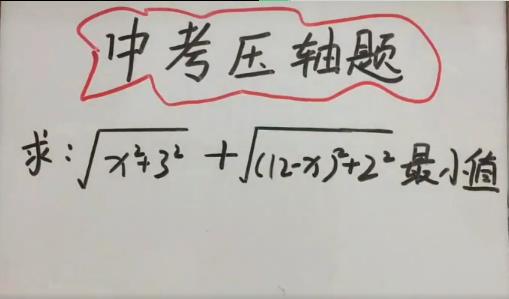 中考压轴题
求:√x²+3² +√(12-x)²+2² 最小值